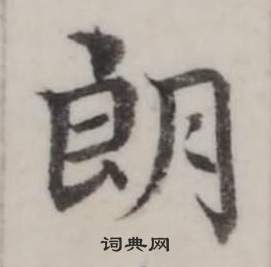 朗
词典网